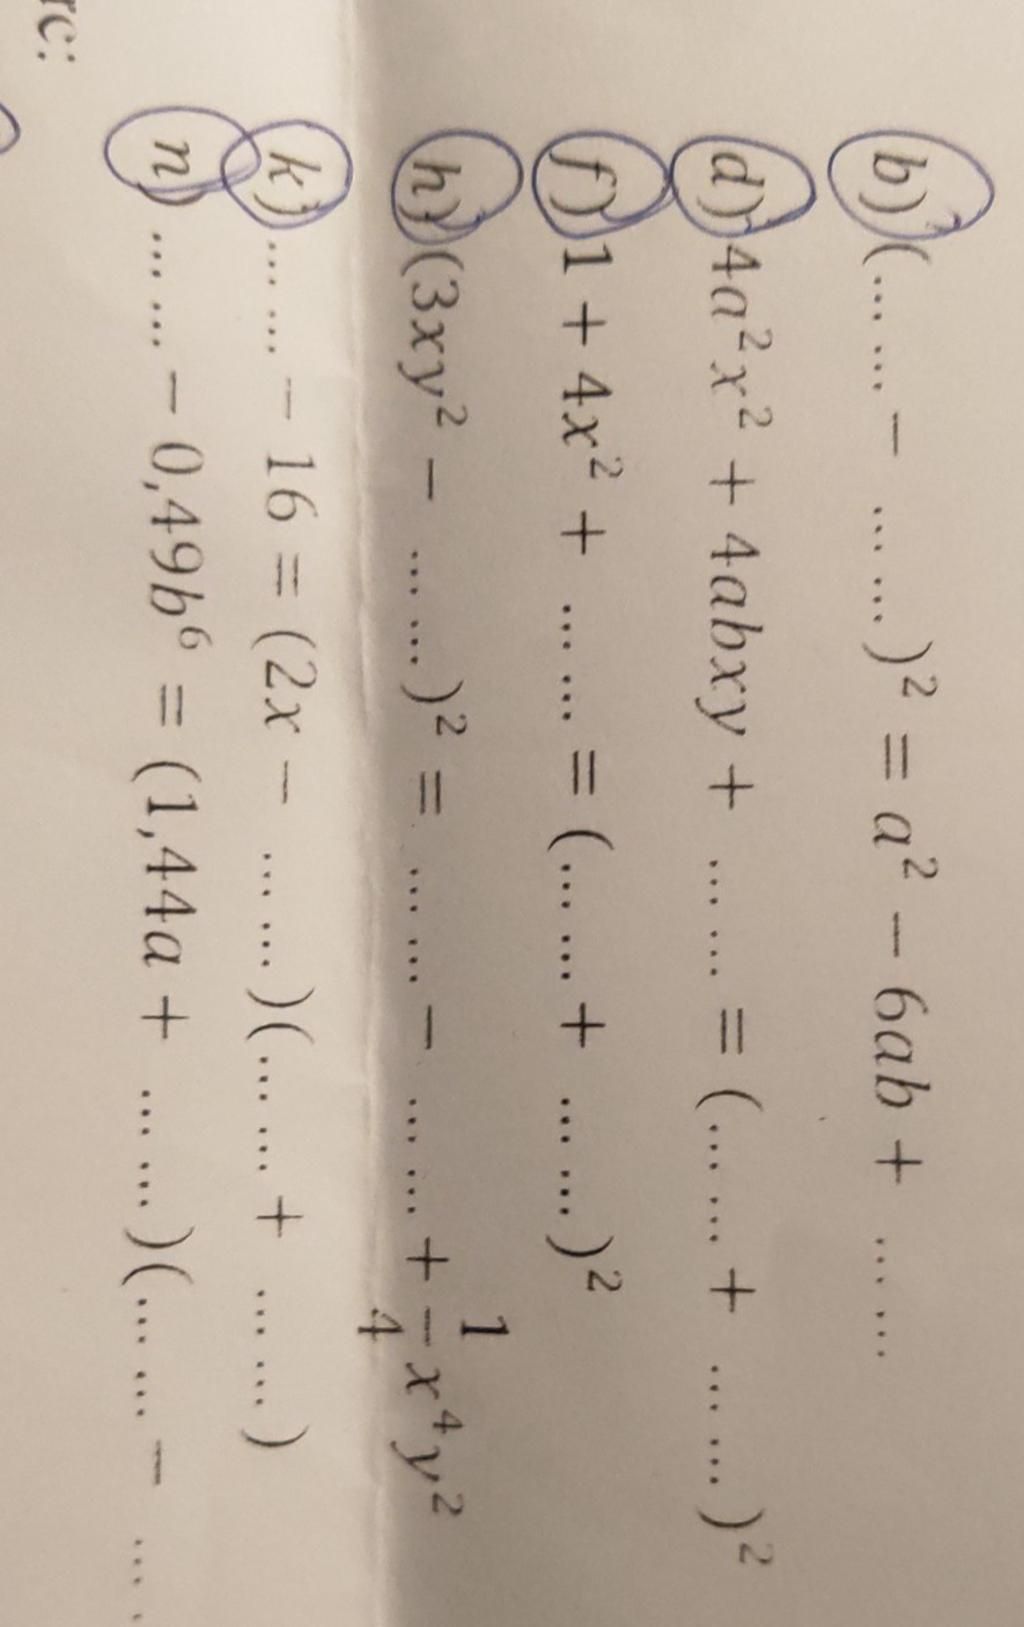 b) (... ... − ... ...)² = a² − 6ab + ... ...
d) 4a²x² + 4abxy + ... ... = (... ... + ... ...)²
f) 1 + 4x² + ... ... = (... ... + ... ...)²
h) (3xy² − ... ...)² = ... ... − ... ... + 1/4 x⁴y²
k) ... ... − 16 = (2x − ... ...)(... ... + ... ...)
n) ... ... − 0,49b⁶ = (1,44a + ... ...)(... ... − ... .